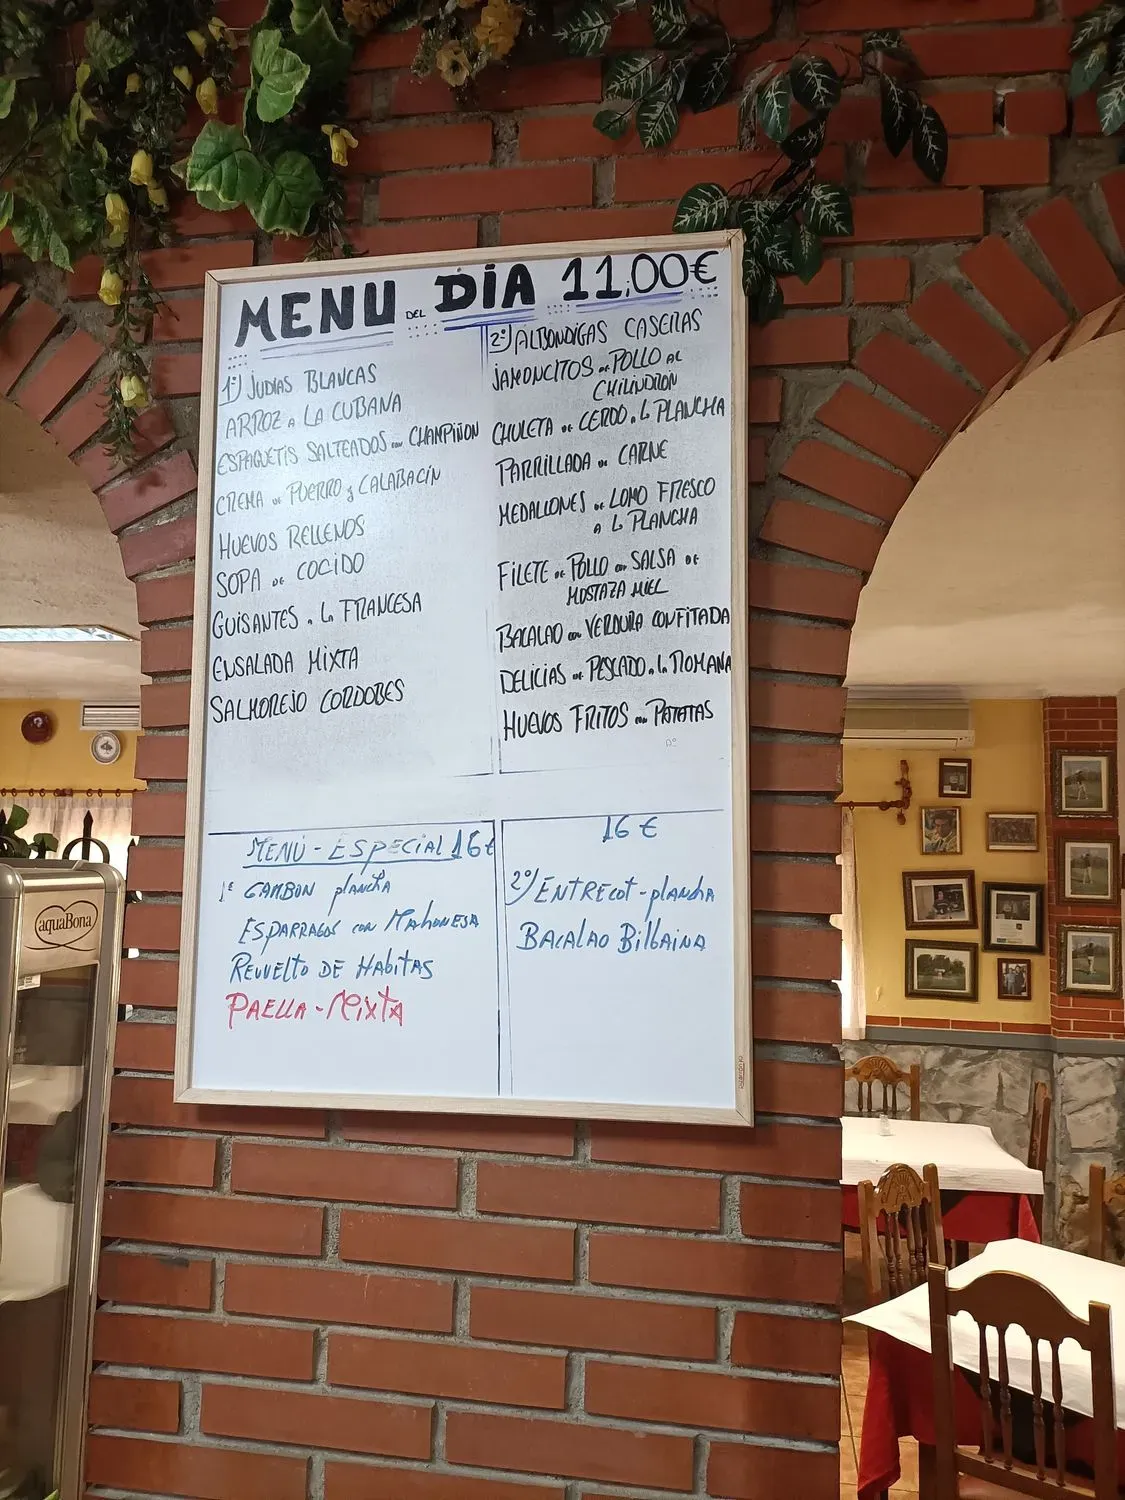 MENU DEL DIA 11,00€
1º) JUDIAS BLANCAS
ARROZ A LA CUBANA
ESPAGUETIS SALTEADOS CON CHAMPIÑON
CREMA DE PUERRO Y CALABACIN
HUEVOS RELLENOS
SOPA DE COCIDO
GUISANTES A LA FRANCESA
ENSALADA MIXTA
SALMOREJO CORDOBES
2º) ALBONDIGAS CASERAS
JAMONCITOS DE POLLO AL
CHILINDRON
CHULETA DE CERDO A LA PLANCHA
PARRILLADA DE CARNE
MEDALLONES DE LOMO FRESCO
A LA PLANCHA
FILETE DE POLLO CON SALSA DE
MOSTAZA MIEL
BACALAO CON VERDURA CONFITADA
DELICIAS DE PESCADO A LA ROMANA
HUEVOS FRITOS CON PATATAS
MENÚ - ESPECIAL 16€
1º GAMBON plancha
ESPARRAGOS con MAHONESA
REVUELTO DE HABITAS
PAELLA - MIXTA
16 €
2º) ENTRECOT - plancha
BACALAO BILBAINA
aquaBona